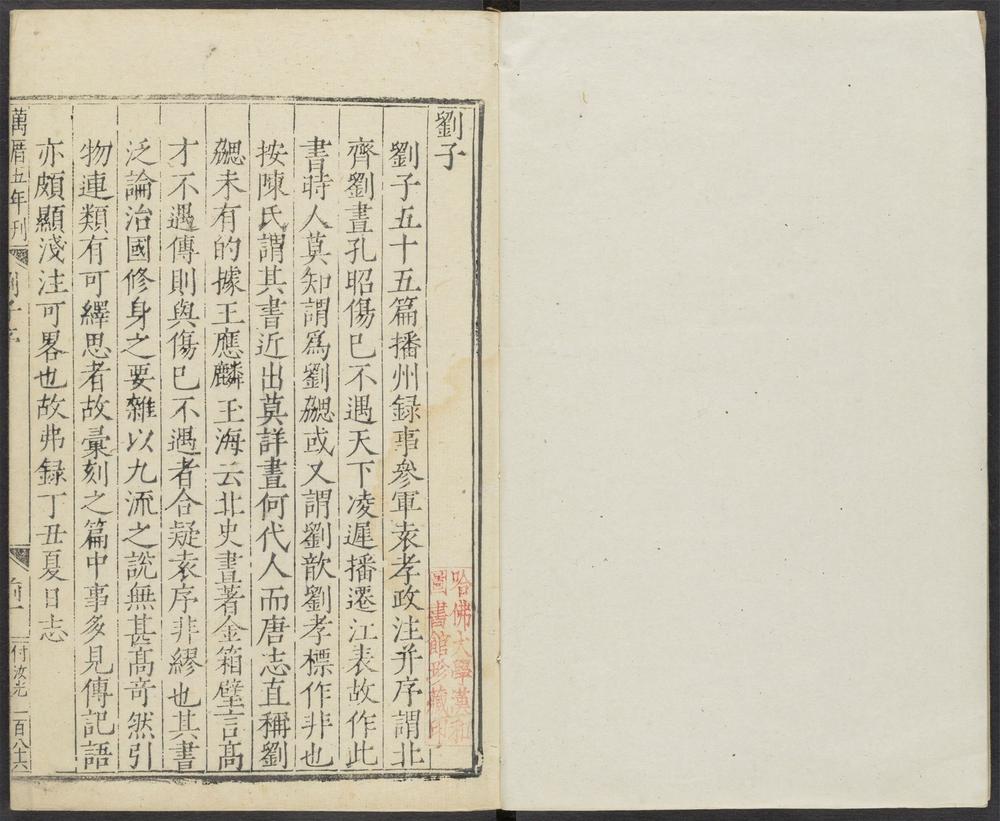 劉子
劉子五十五篇播州録事參軍袁孝政注并序謂北
齊劉晝孔昭傷已不遇天下凌遲播遷江表故作此
書時人莫知謂爲劉勰或又謂劉歆劉孝標作非也
按陳氏謂其書近出莫詳晝何代人而唐志直稱劉
勰未有的據王應麟玉海云北史晝著金箱壁言髙
才不遇傳則與傷已不遇者合疑袁序非繆也其書
泛論治國修身之要雜以九流之說無甚髙奇然引
物連類有可繹思者故彙刻之篇中事多見傳記語
亦頗顯淺注可畧也故弗録丁丑夏日志
萬曆五年刋
付汝光
一百八十六
哈佛大學漢和
圖書館珍藏印